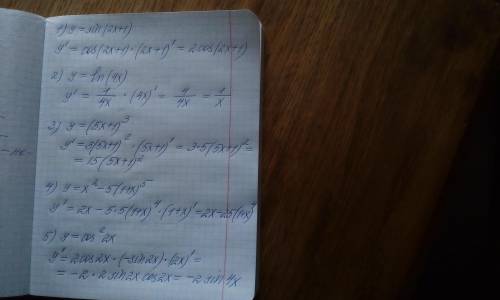 1) y = sin(2x+1)
y' = cos(2x+1)·(2x+1)' = 2cos(2x+1)
2) y = ln(4x)
y' = 1/4x · (4x)' = 4/4x = 1/x
3) y = (5x+1)^3
y' = 3(5x+1)^2 · (5x+1)' = 3·5(5x+1)^2 =
= 15(5x+1)^2
4) y = x^2 - 5(1+x)^5
y' = 2x - 5·5(1+x)^4 · (1+x)' = 2x - 25(1+x)^4
5) y = cos^2 2x
y' = 2cos2x · (-sin2x) · (2x)' =
= -2 · 2sin2x cos2x = -2sin4x